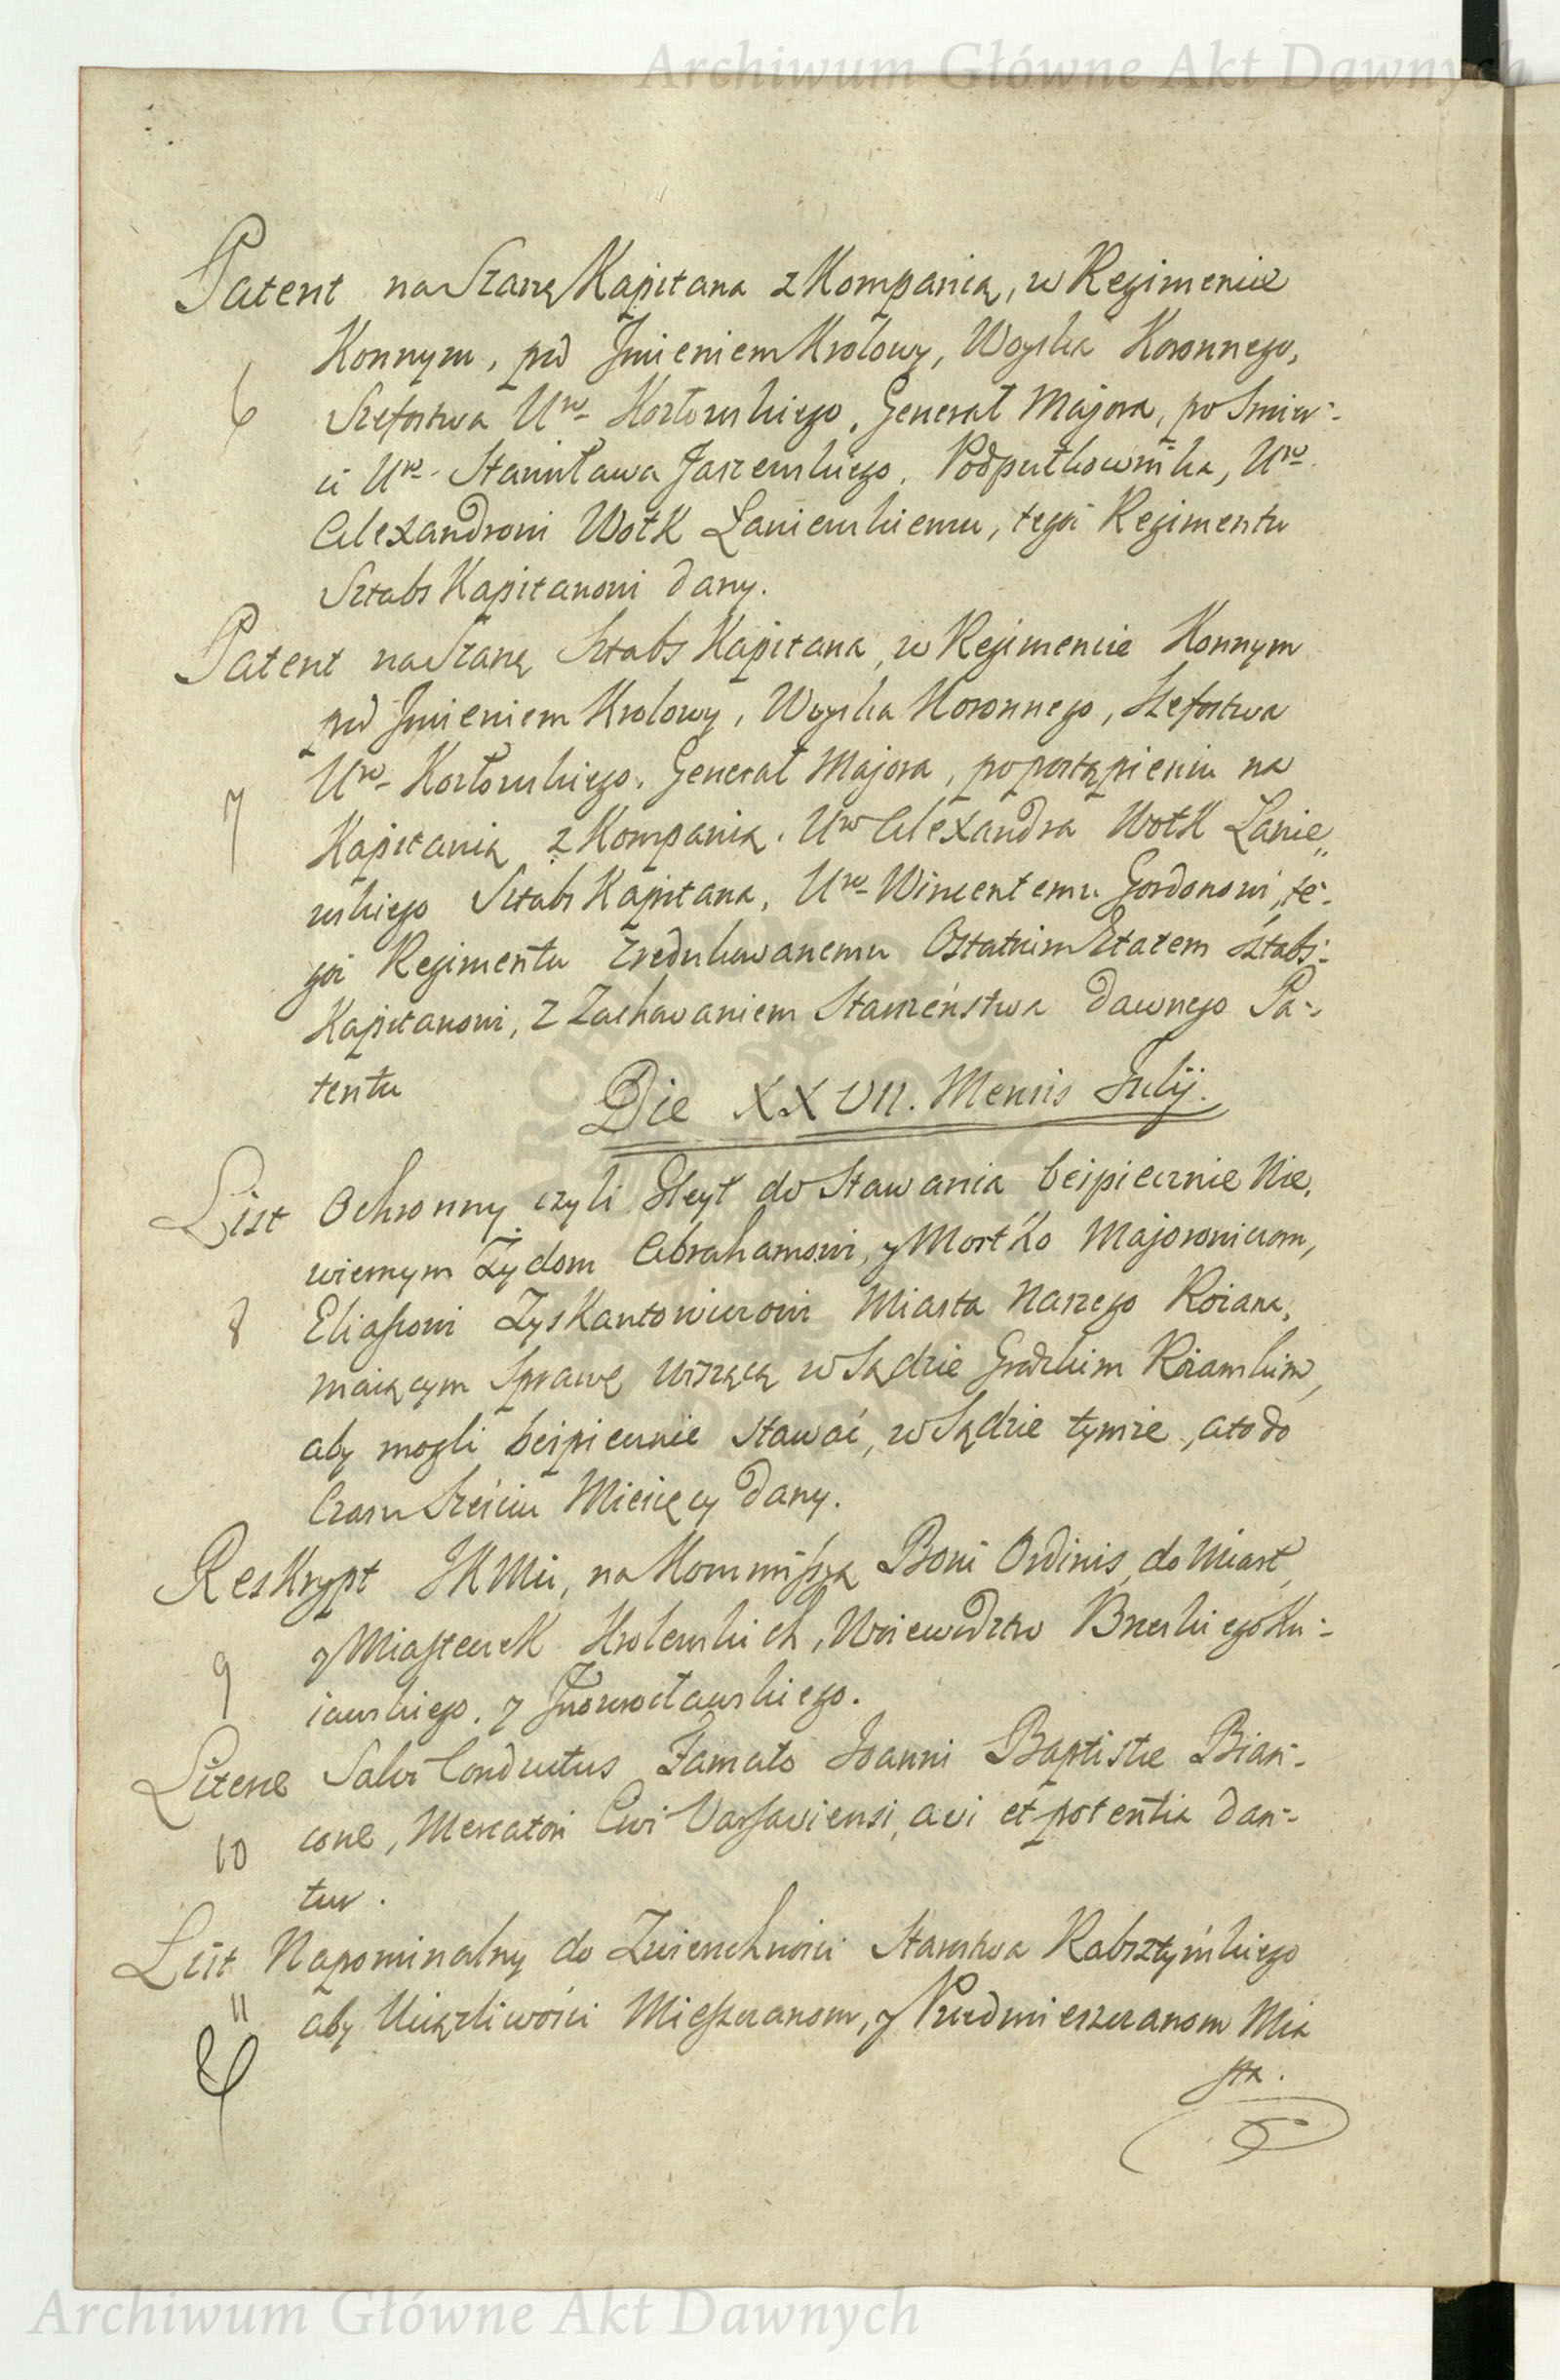 Archiwum Główne Akt Dawnych
Patent na Szarżę Kapitana z Kompanią, w Regimencie
Konnym, pod Jmieniem Krolowy, Woyska Koronnego,
6
Szefostwa Uro Kozłowskiego, Generał Majora, po Smier-
ci Uro Stanisława Jaszewskiego, Podpułkownika, Uro
Alexandrowi Wołk Laniewskiemu, tegoż Regimentu
Sztabs Kapitanowi dany.
Patent na Szarżę Sztabs Kapitana, w Regimencie Konnym
pod Jmieniem Krolowy, Woyska Koronnego, Szefostwa
Uro Kozłowskiego, Generał Majora, po postąpieniu na
7
Kapitanią z Kompanią, Uro Alexandra Wołk Lanie„
wskiego Sztabs Kapitana, Uro Wincentemu Gordonowi, te-
goż Regimentu Zredukowanemu Ostatnim Etatem Sztabs-
Kapitanowi, z Zachowaniem Starszeństwa dawnego Pa-
tentu
Die XXVII. Mensis Julij.
List Ochronny czyli Gleyt do Stawania bespiecznie Nie,
wiernym Żydom Abrahamowi, y Mostko Majorowiczom,
8
Eliaszowi Zyskantowiczowi Miasta Naszego Rożana,
maiącym Sprawę wiszącą w Sądzie Grodzkim Rożanskim,
aby mogli bespiecznie stawać, w Sądzie tymże, a to do
Czasu Sześciu Miesięcy dany.
Reskrypt JKMci, na Kommissyą Boni Ordinis, do Miast,
y Miasteczek Krolewskich, Woiewodztw Brzeskiego Ku-
9
iawskiego, y Jnowrocławskiego.
Literæ Salvi Conductus Famato Joanni Baptistæ Bian-
cone, Mercatori Civi Varsaviensi, a vi et potentia dan-
10
tur.
List Napominalny do Zwierzchności Starostwa Rabsztyńskiego
11
aby Uciążliwości Mieszczanom, y Przedmieszczanom Mia
sta.
Archiwum Główne Akt Dawnych